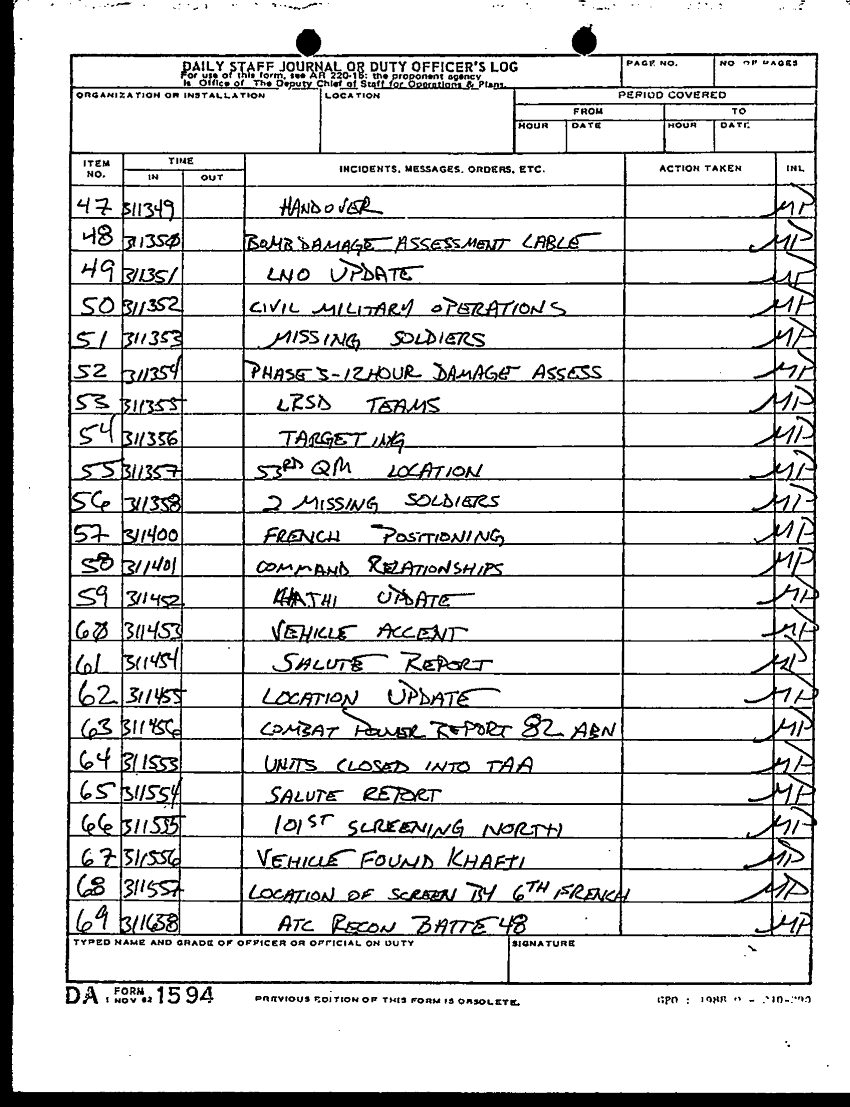 DAILY STAFF JOURNAL OR DUTY OFFICER'S LOG
For use of this form, see AR 220-15; the proponent agency
is Office of The Deputy Chief of Staff for Operations & Plans.
PAGE NO.
NO OF PAGES
ORGANIZATION OR INSTALLATION
LOCATION
PERIOD COVERED
FROM
TO
HOUR DATE HOUR DATE
ITEM NO. TIME INCIDENTS, MESSAGES, ORDERS, ETC. ACTION TAKEN INL
IN OUT
47 311349 HANDOVER MP
48 311350 BOMB DAMAGE ASSESSMENT LABLE MP
49 311351 LNO UPDATE MP
50 311352 CIVIL MILITARY OPERATIONS MP
51 311353 MISSING SOLDIERS MP
52 311354 PHASE 3-12 HOUR DAMAGE ASSESS MP
53 311355 LRSD TEAMS MP
54 311356 TARGETING MP
55 311357 53RD QM LOCATION MP
56 311358 2 MISSING SOLDIERS MP
57 311400 FRENCH POSITIONING MP
58 311401 COMMAND RELATIONSHIPS MP
59 311452 KHATHI UPDATE MP
60 311453 VEHICLE ACCENT MP
61 311454 SALUTE REPORT MP
62 311455 LOCATION UPDATE MP
63 311456 COMBAT POWER REPORT 82 ABN MP
64 311553 UNITS CLOSED INTO TAA MP
65 311554 SALUTE REPORT MP
66 311555 101ST SCREENING NORTH MP
67 311556 VEHICLE FOUND KHAFTI MP
68 311557 LOCATION OF SCREEN BY 6TH FRENCH MP
69 311638 ATC RECON BATTE 48 MP
TYPED NAME AND GRADE OF OFFICER OR OFFICIAL ON DUTY
SIGNATURE
DA FORM 1 NOV 62 1594
PREVIOUS EDITION OF THIS FORM IS OBSOLETE.